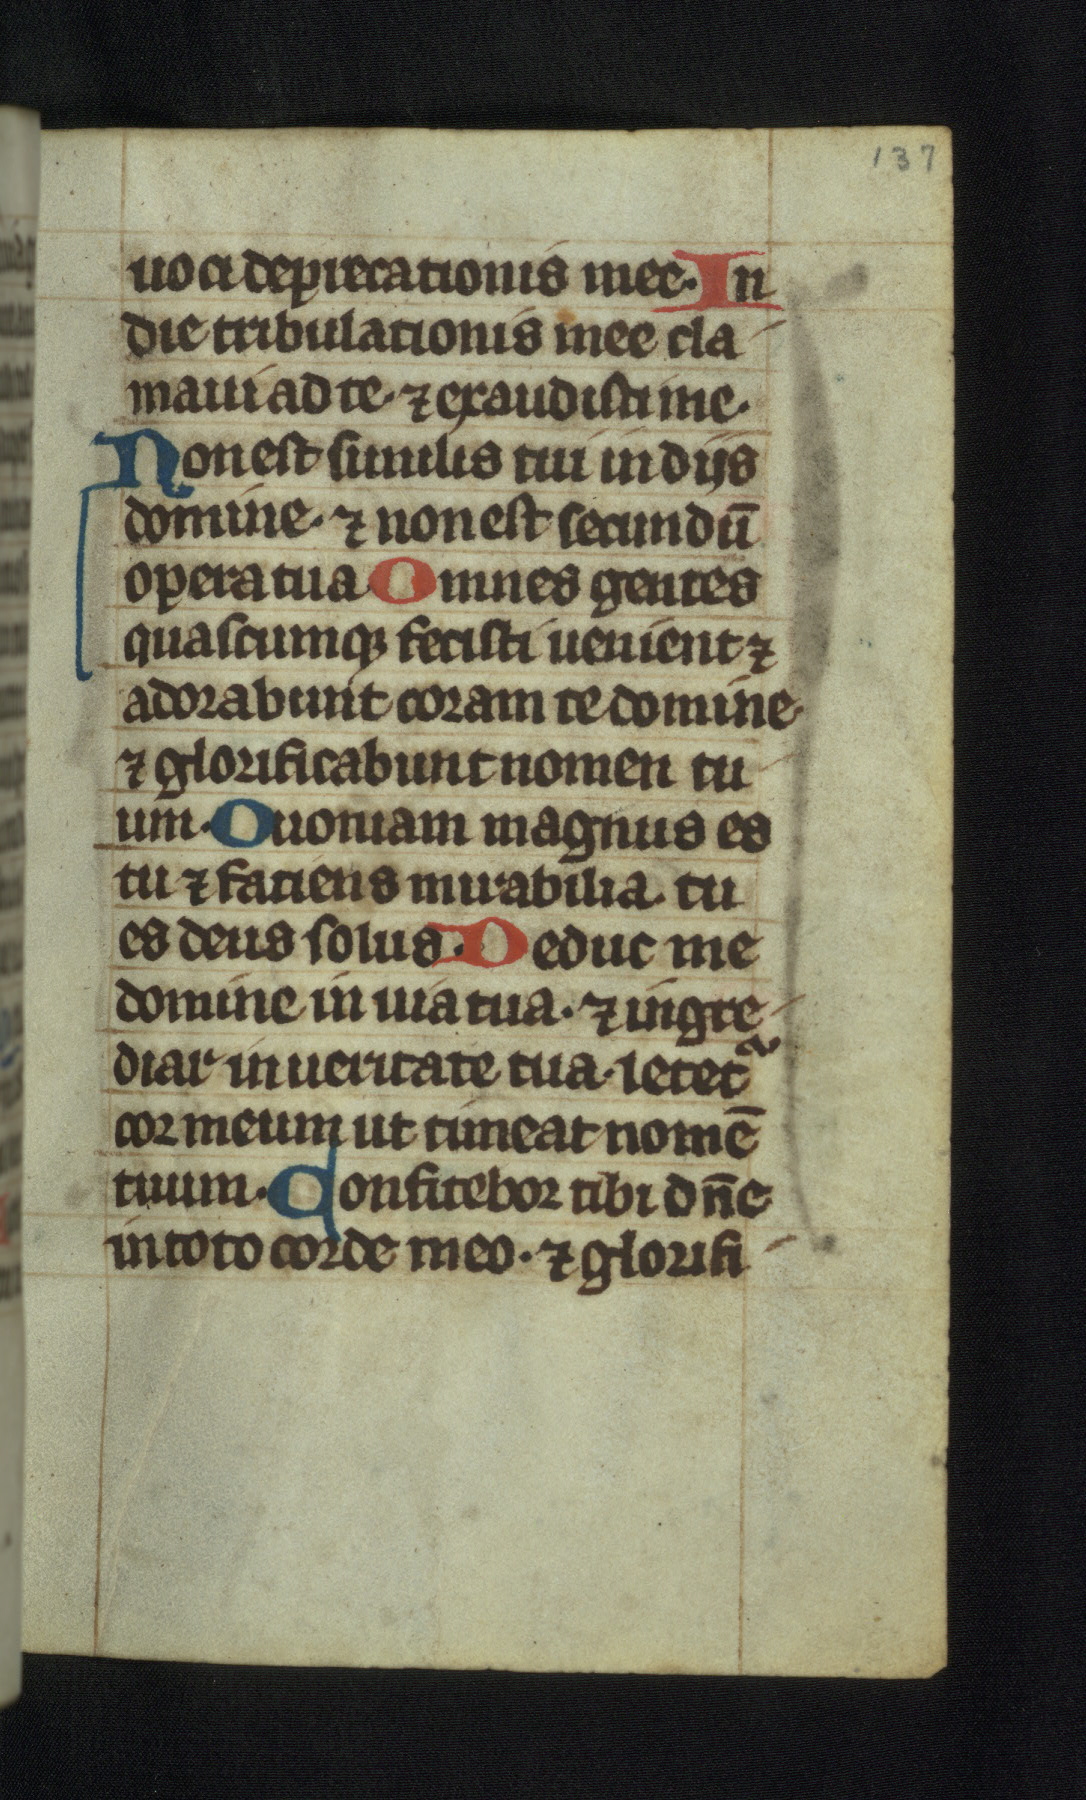 137
uoci deprecationis mee. In
die tribulationis mee cla
maui ad te. ⁊ exaudisti me.
Non est similis tui in dijs
domine. ⁊ non est secundū
opera tua Omnes gentes
quascumqꝫ fecisti uenient ⁊
adorabunt coram te domine.
⁊ glorificabunt nomen tu
um. Quoniam magnus es
tu ⁊ faciens mirabilia. tu
es deus solus. Deduc me
domine in uia tua. ⁊ ingre
diar in ueritate tua. letet᷑
cor meum ut timeat nomē
tuum. Confitebor tibi dn̄e
in toto corde meo. ⁊ glorifi